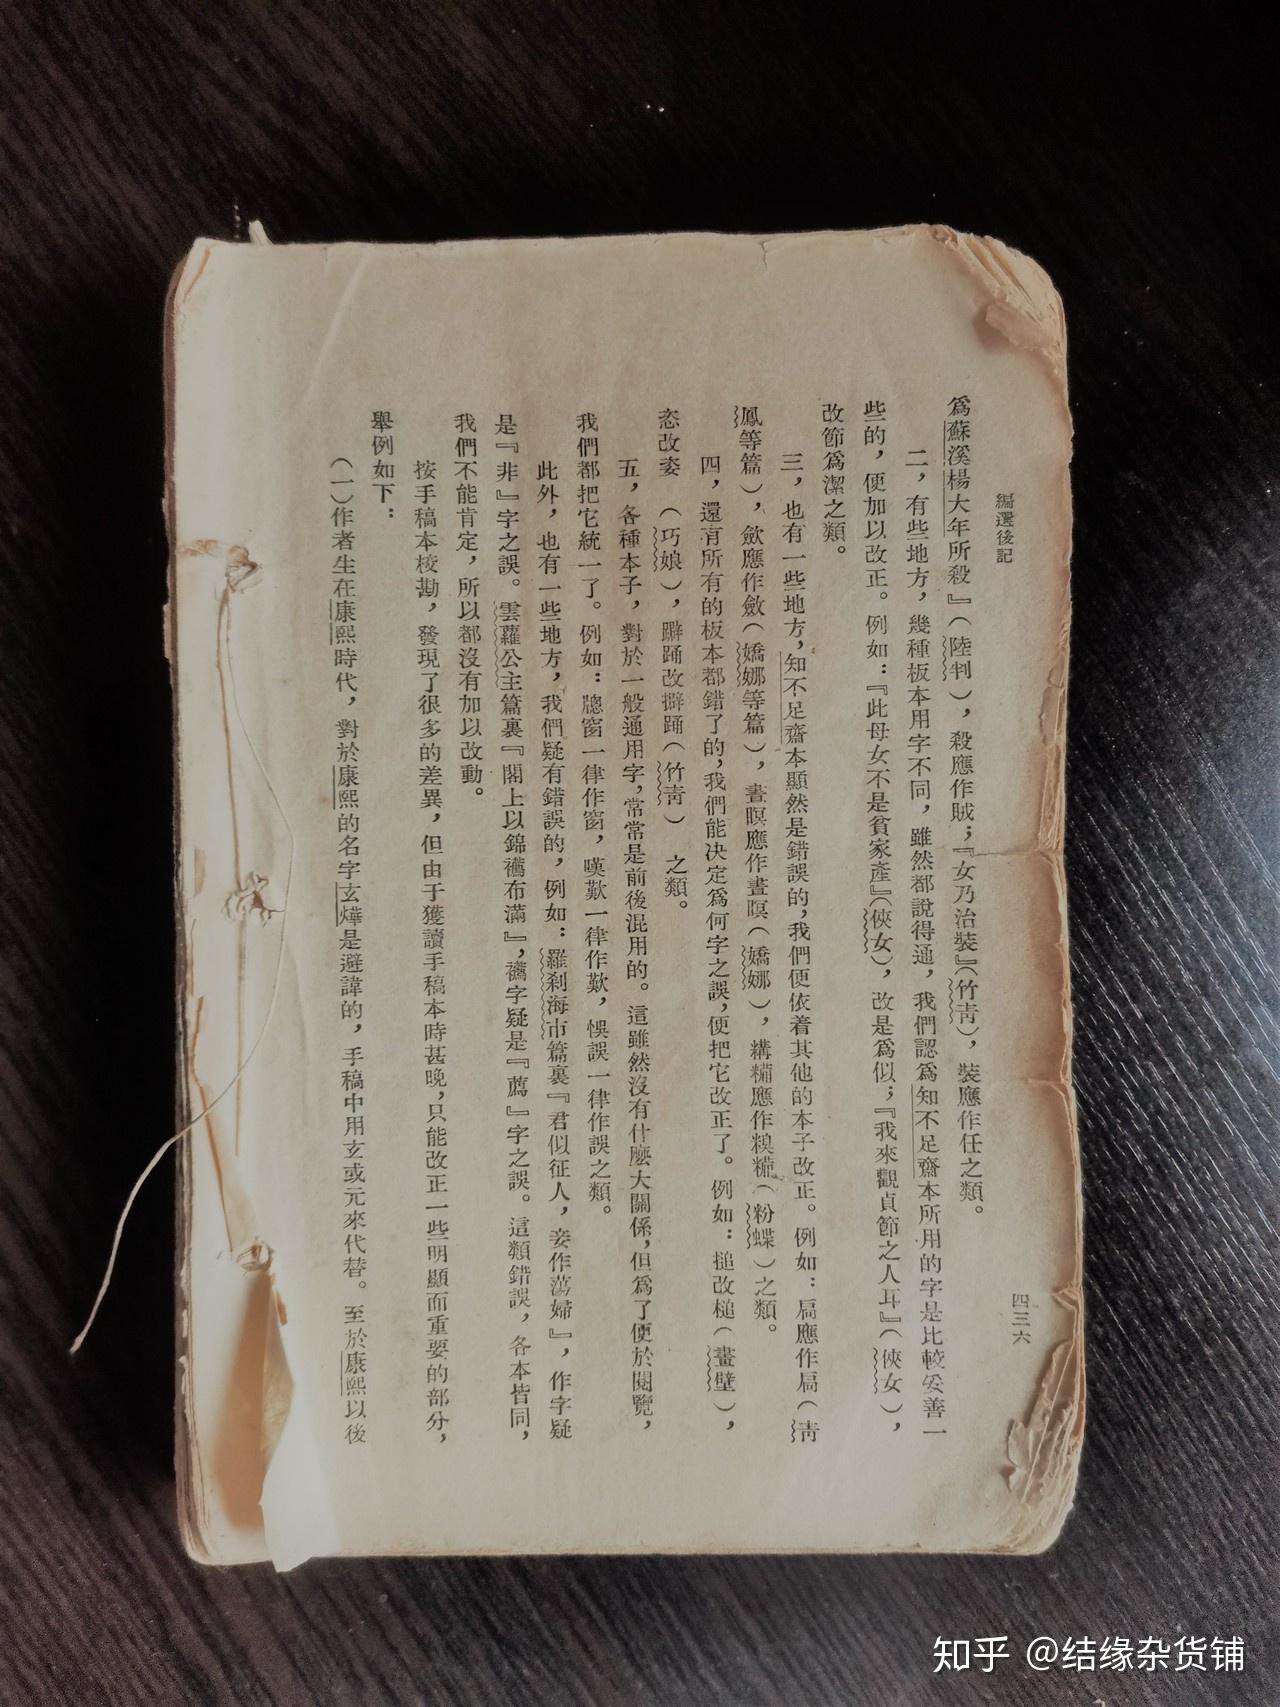 編選後記
四三六
爲蘇溪楊大年所殺』（陸判），殺應作賊；『女乃治裝』（竹靑），裝應作任之類。
二，有些地方，幾種板本用字不同，雖然都說得通，我們認爲知不足齋本所用的字是比較妥善一
些的，便加以改正。例如：『此母女不是貧家產』（俠女），改是爲似；『我來觀貞節之人耳』（俠女），
改節爲潔之類。
三，也有一些地方，知不足齋本顯然是錯誤的，我們便依着其他的本子改正。例如：扃應作局（靑
鳳等篇），歛應作斂（嬌娜等篇），晝暝應作晝瞑（嬌娜），糒應作糗糒（粉蝶）之類。
四，還有所有的板本都錯了的，我們能決定爲何字之誤，便把它改正了。例如：搥改槌（畫壁），
恣改姿（巧娘），躃踊改擗踊（竹靑）之類。
五，各種本子，對於一般通用字，常常是前後混用的。這雖然沒有什麼大關係，但爲了便於閱覽，
我們都把它統一了。例如：牕窗一律作窗，嘆歎一律作歎，悞誤一律作誤之類。
此外，也有一些地方，我們疑有錯誤的，例如：羅刹海市篇裏『君似征人，妾作蕩婦』，作字疑
是『非』字之誤。雲蘿公主篇裏『閣上以錦韉布滿』，韉字疑是『薦』字之誤。這類錯誤，各本皆同，
我們不能肯定，所以都沒有加以改動。
按手稿本校勘，發現了很多的差異，但由于獲讀手稿本時甚晚，只能改正一些明顯而重要的部分，
舉例如下：
（一）作者生在康熙時代，對於康熙的名字玄燁是避諱的，手稿中用玄或元來代替。至於康熙以後
知乎 @结缘杂货铺